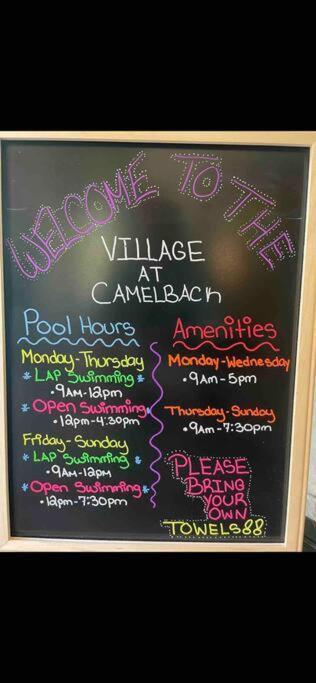 WELCOME TO THE
VILLAGE
AT
CAMELBACK
Pool Hours
Monday-Thursday
* LAP Swimming *
• 9AM-12pm
* Open Swimming *
• 12pm-4:30pm
Friday-Sunday
* LAP Swimming *
• 9AM-12pm
* Open Swimming *
• 12pm-7:30pm
Amenities
Monday-Wednesday
• 9Am-5pm
Thursday-Sunday
• 9Am-7:30pm
PLEASE
BRING
YOUR
OWN
TOWELS88